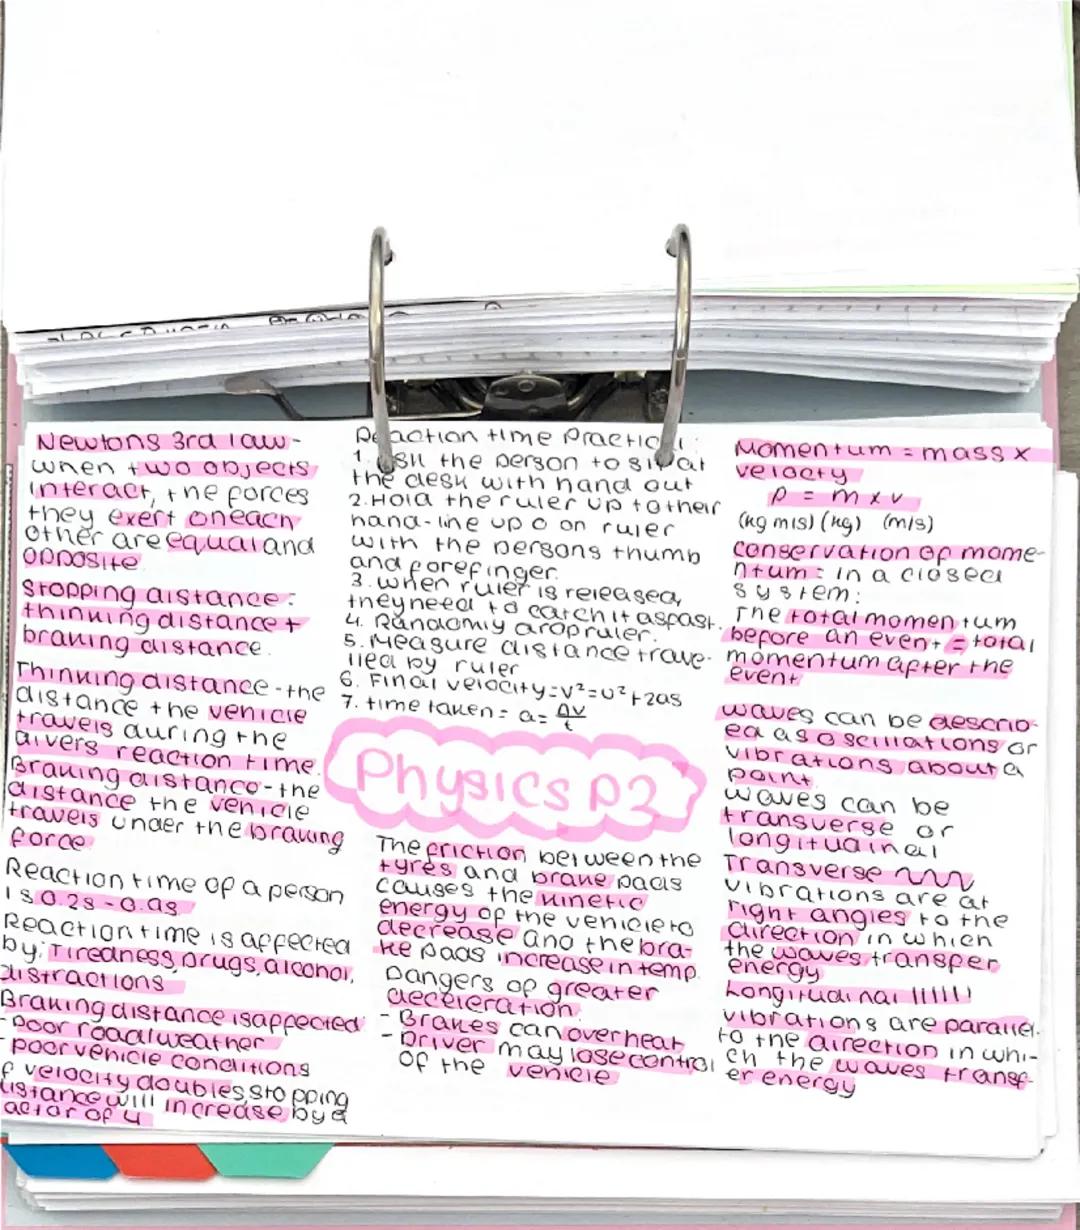 Newtons 3rd law-
when two objects
interact, the forces
they exert oneach
other are equal and
opposite.
Stopping distance:
thinking distance +
braking distance.
Thinking distance - the
distance the vehicle
travels during the
divers reaction time.
Braking distance - the
distance the vehicle
travels under the braking
force.
Reaction time of a person
is 0.2s - 0.9s
Reaction time is affected
by: Tiredness, Drugs, alcohol,
distractions
Braking distance is affected
- poor road/weather
- poor vehicle conditions
velocity doubles, stopping
distance will increase by a
factor of 4
Reaction time Practical:
1. Ask the person to sit at
the desk with hand out
2. Hold the ruler up to their
hand - line up 0 on ruler
with the persons thumb
and forefinger.
3. When ruler is released,
they need to catch it aspast.
4. Randomly drop ruler.
5. Measure distance trave-
lled by ruler
6. Final velocity = v² = u² + 2as
7. time taken = a = Δv/t
Physics P2
The friction between the
tyres and brake pads
causes the kinetic
energy of the vehicle to
decrease and the bra-
ke pads increase in temp.
Dangers of greater
deceleration:
- Brakes can overheat
- Driver may lose control
of the vehicle
Momentum = mass x
velocty
P = m x v
(kg m/s) (kg) (m/s)
conservation of mome-
ntum: in a closed
system:
The total momentum
before an event = total
momentum after the
event
waves can be describ-
ed as oscillations or
vibrations about a
point.
waves can be
transverse or
longitudinal
Transverse
vibrations are at
right angles to the
direction in which
the waves transfer
energy
Longitudinal
vibrations are parallel
to the direction in whi-
ch the waves transf-
er energy